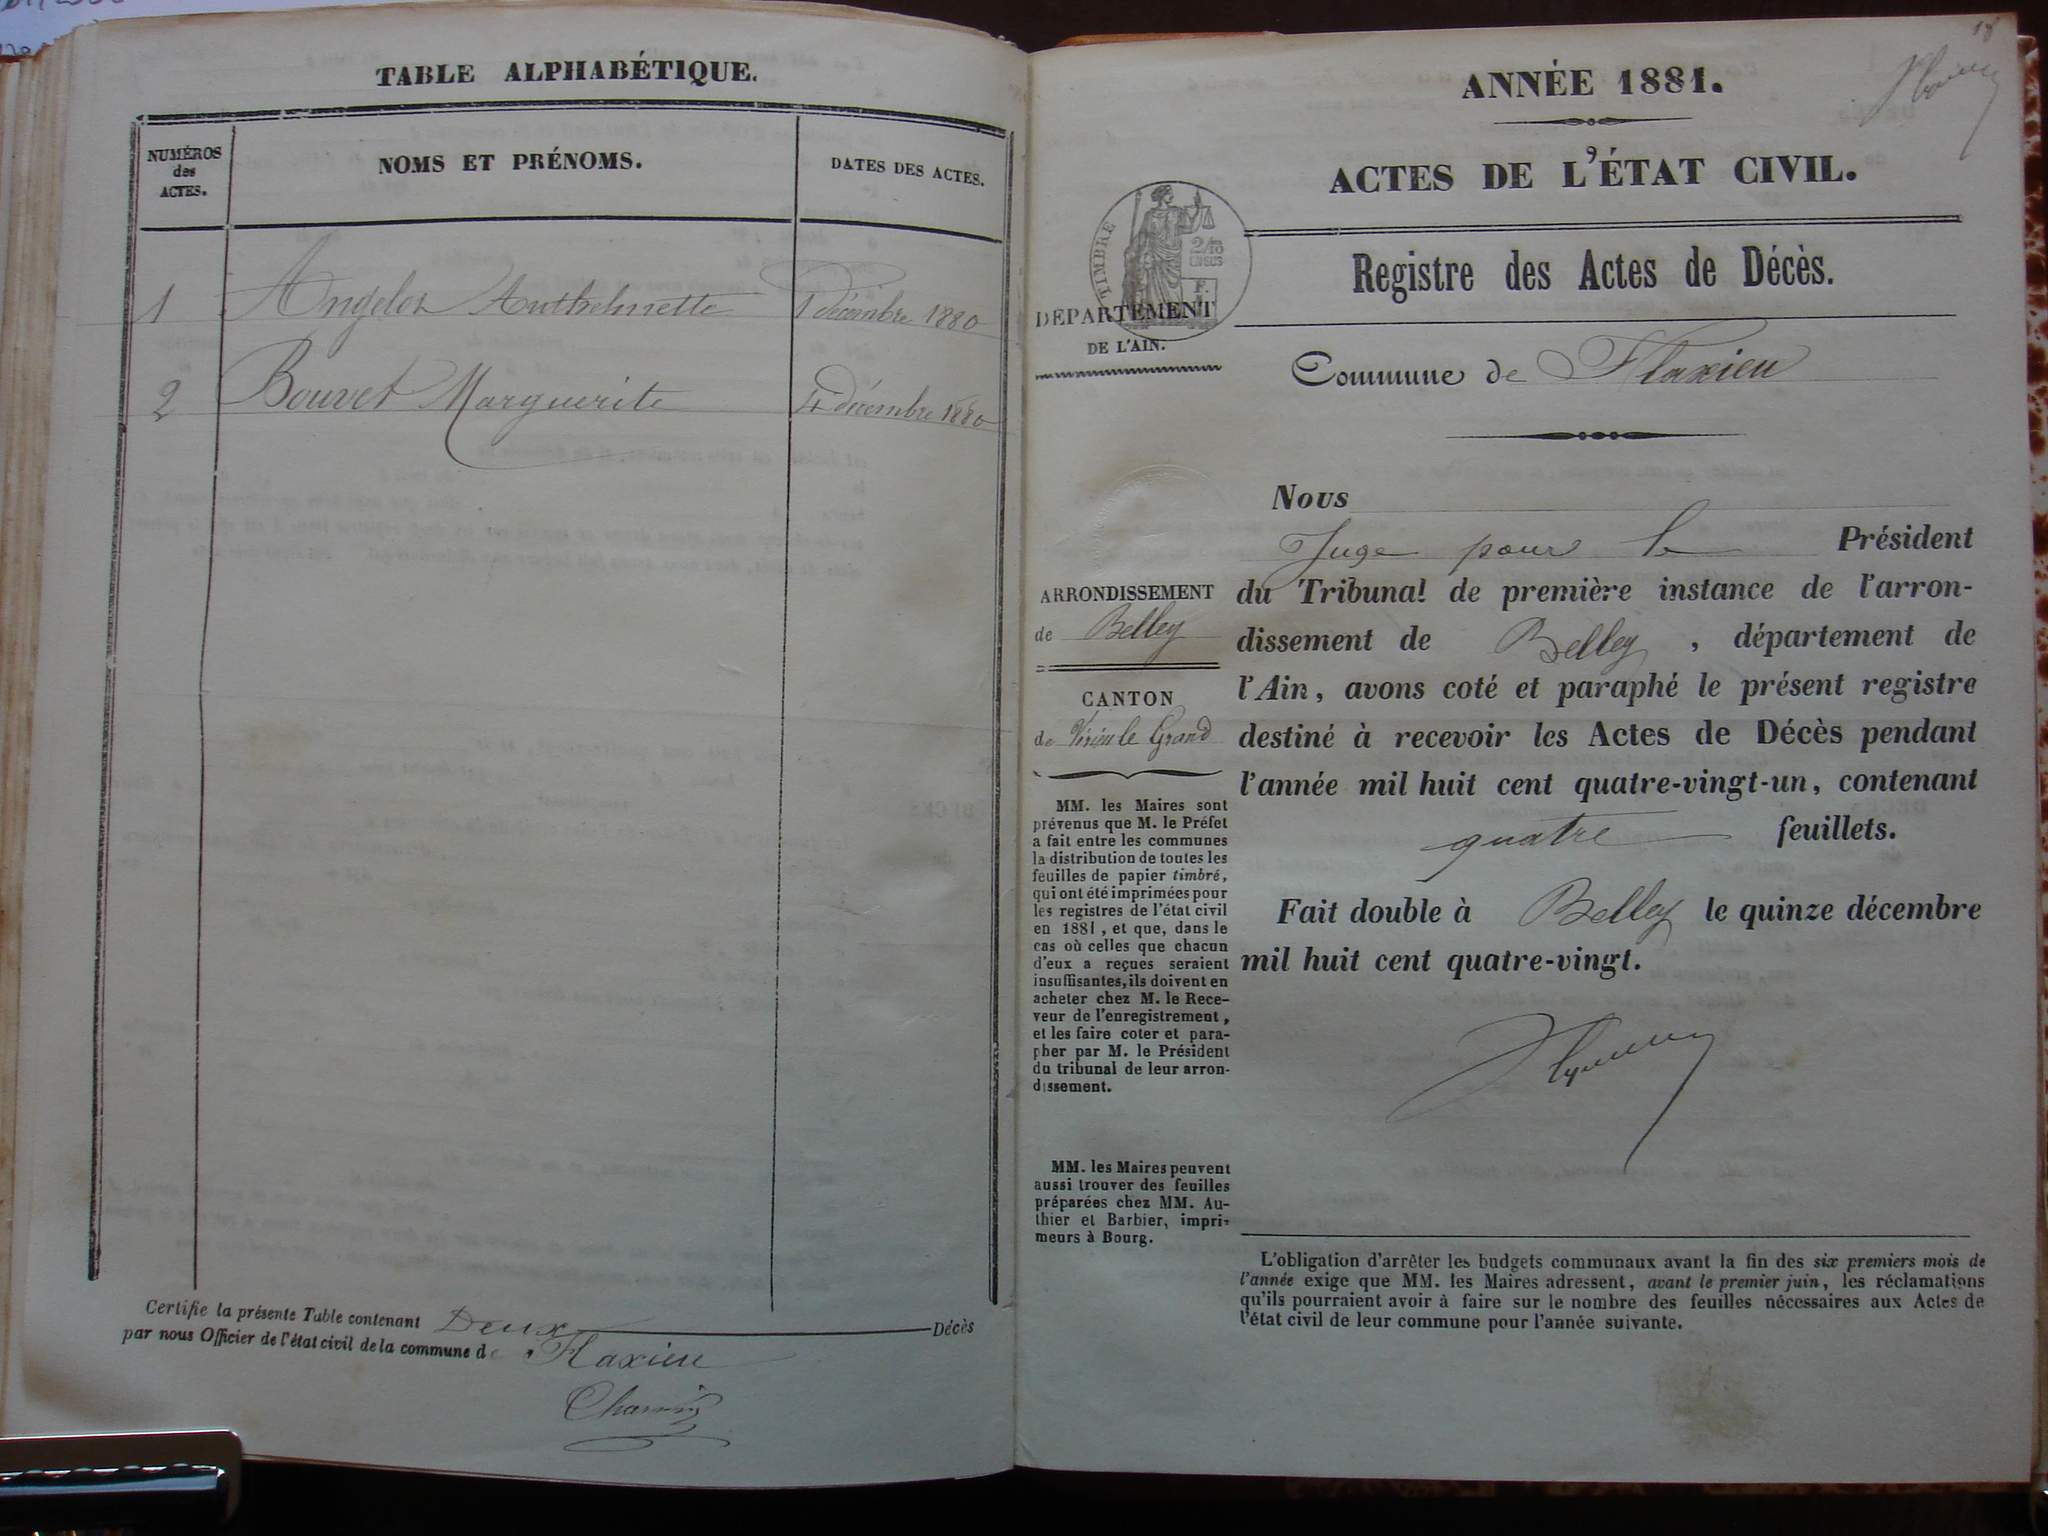 TABLE ALPHABÉTIQUE.
NUMÉROS
des
ACTES.
NOMS ET PRÉNOMS.
DATES DES ACTES.
1 Angelot Anthelmette 1 décembre 1880
2 Bouvet Marguerite 4 décembre 1880
Certifie la présente Table contenant Deux Décès
par nous Officier de l'état civil de la commune de Flaxieu
18
ANNÉE 1881.
ACTES DE L'ÉTAT CIVIL.
TIMBRE
2/10
EN SUS
F.
DEPARTEMENT
DE L'AIN.
Registre des Actes de Décès.
Commune de Flaxieu
ARRONDISSEMENT
de Belley
CANTON
de Virieu le Grand
MM. les Maires sont
prévenus que M. le Préfet
a fait entre les communes
la distribution de toutes les
feuilles de papier timbré,
qui ont été imprimées pour
les registres de l'état civil
en 1881, et que, dans le
cas où celles que chacun
d'eux a reçues seraient
insuffisantes, ils doivent en
acheter chez M. le Rece-
veur de l'enregistrement,
et les faire coter et para-
pher par M. le Président
du tribunal de leur arron-
dissement.
MM. les Maires peuvent
aussi trouver des feuilles
préparées chez MM. Au-
thier et Barbier, impri-
meurs à Bourg.
Nous
Juge pour le Président
du Tribunal de première instance de l'arron-
dissement de Belley, département de
l'Ain, avons coté et paraphé le présent registre
destiné à recevoir les Actes de Décès pendant
l'année mil huit cent quatre-vingt-un, contenant
quatre feuillets.
Fait double à Belley le quinze décembre
mil huit cent quatre-vingt.
L'obligation d'arrêter les budgets communaux avant la fin des six premiers mois de
l'année exige que MM. les Maires adressent, avant le premier juin, les réclamations
qu'ils pourraient avoir à faire sur le nombre des feuilles nécessaires aux Actes de
l'état civil de leur commune pour l'année suivante.